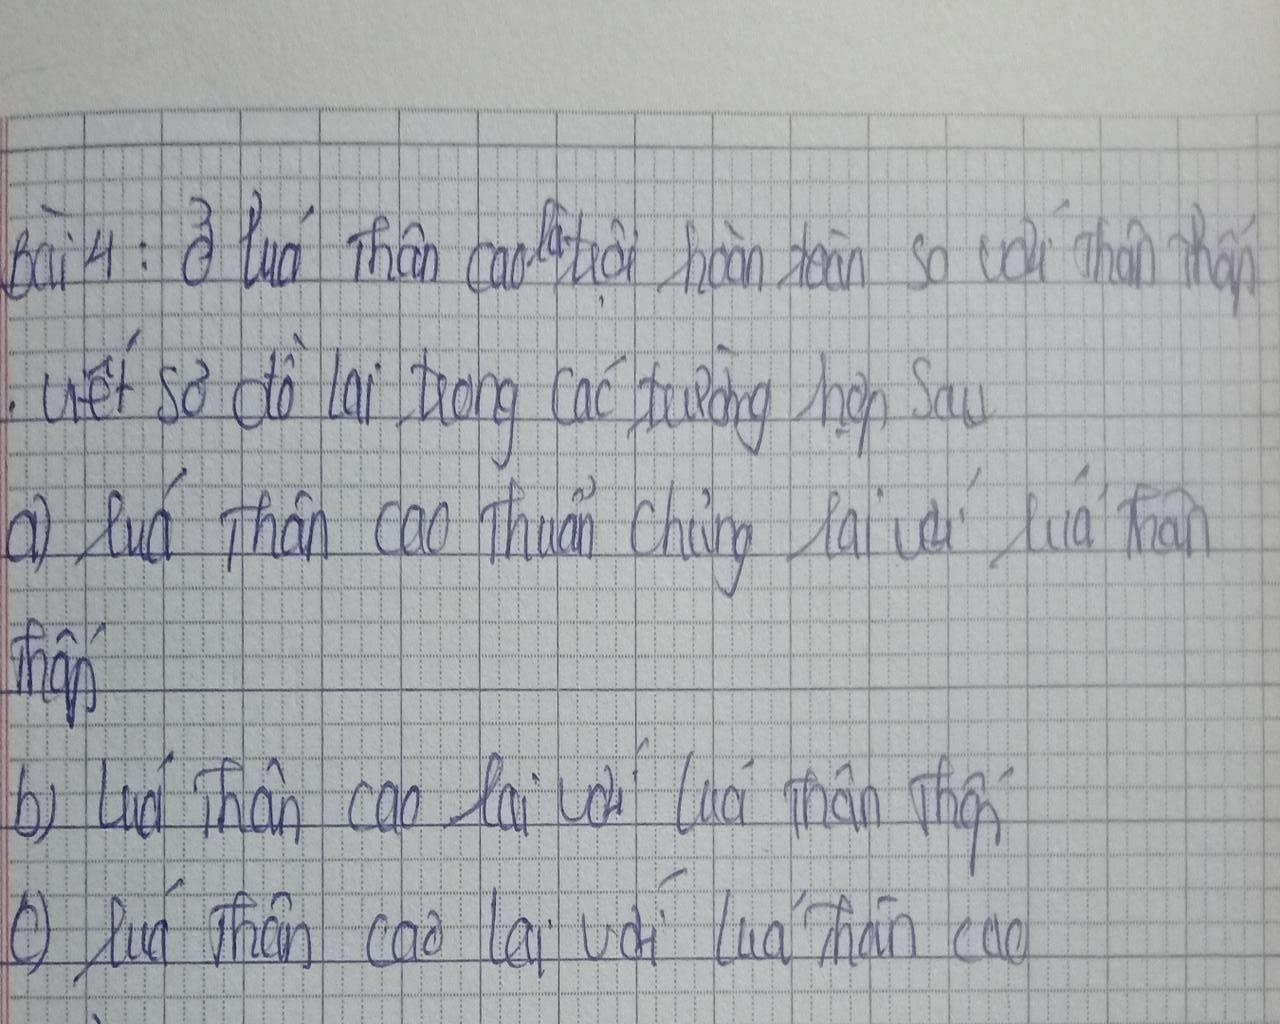 Bài 4: Ở luá thân cao là trội hoàn toàn so với thân thấp
. viết sơ đồ lai trong các trường hợp sau
a) luá thân cao thuần chủng lai với luá thân
thấp
b) luá thân cao lai với luá thân thấp
c) luá thân cao lai với luá thân cao